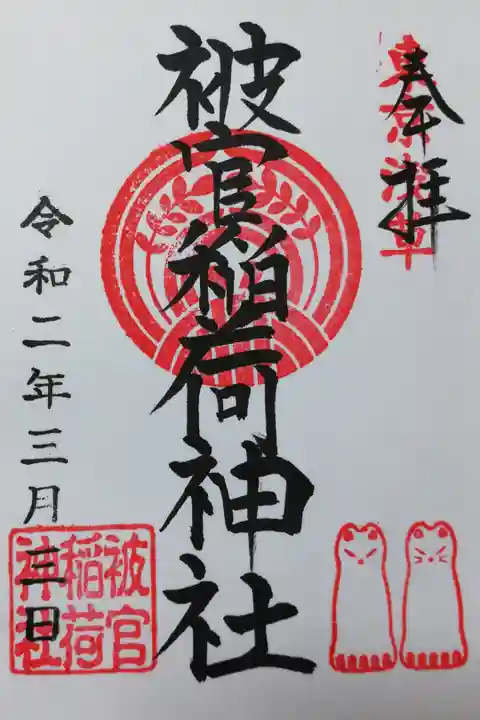 奉拝
東京浅草
被官稲荷神社
令和二年三月三日
被官
稲荷
神社